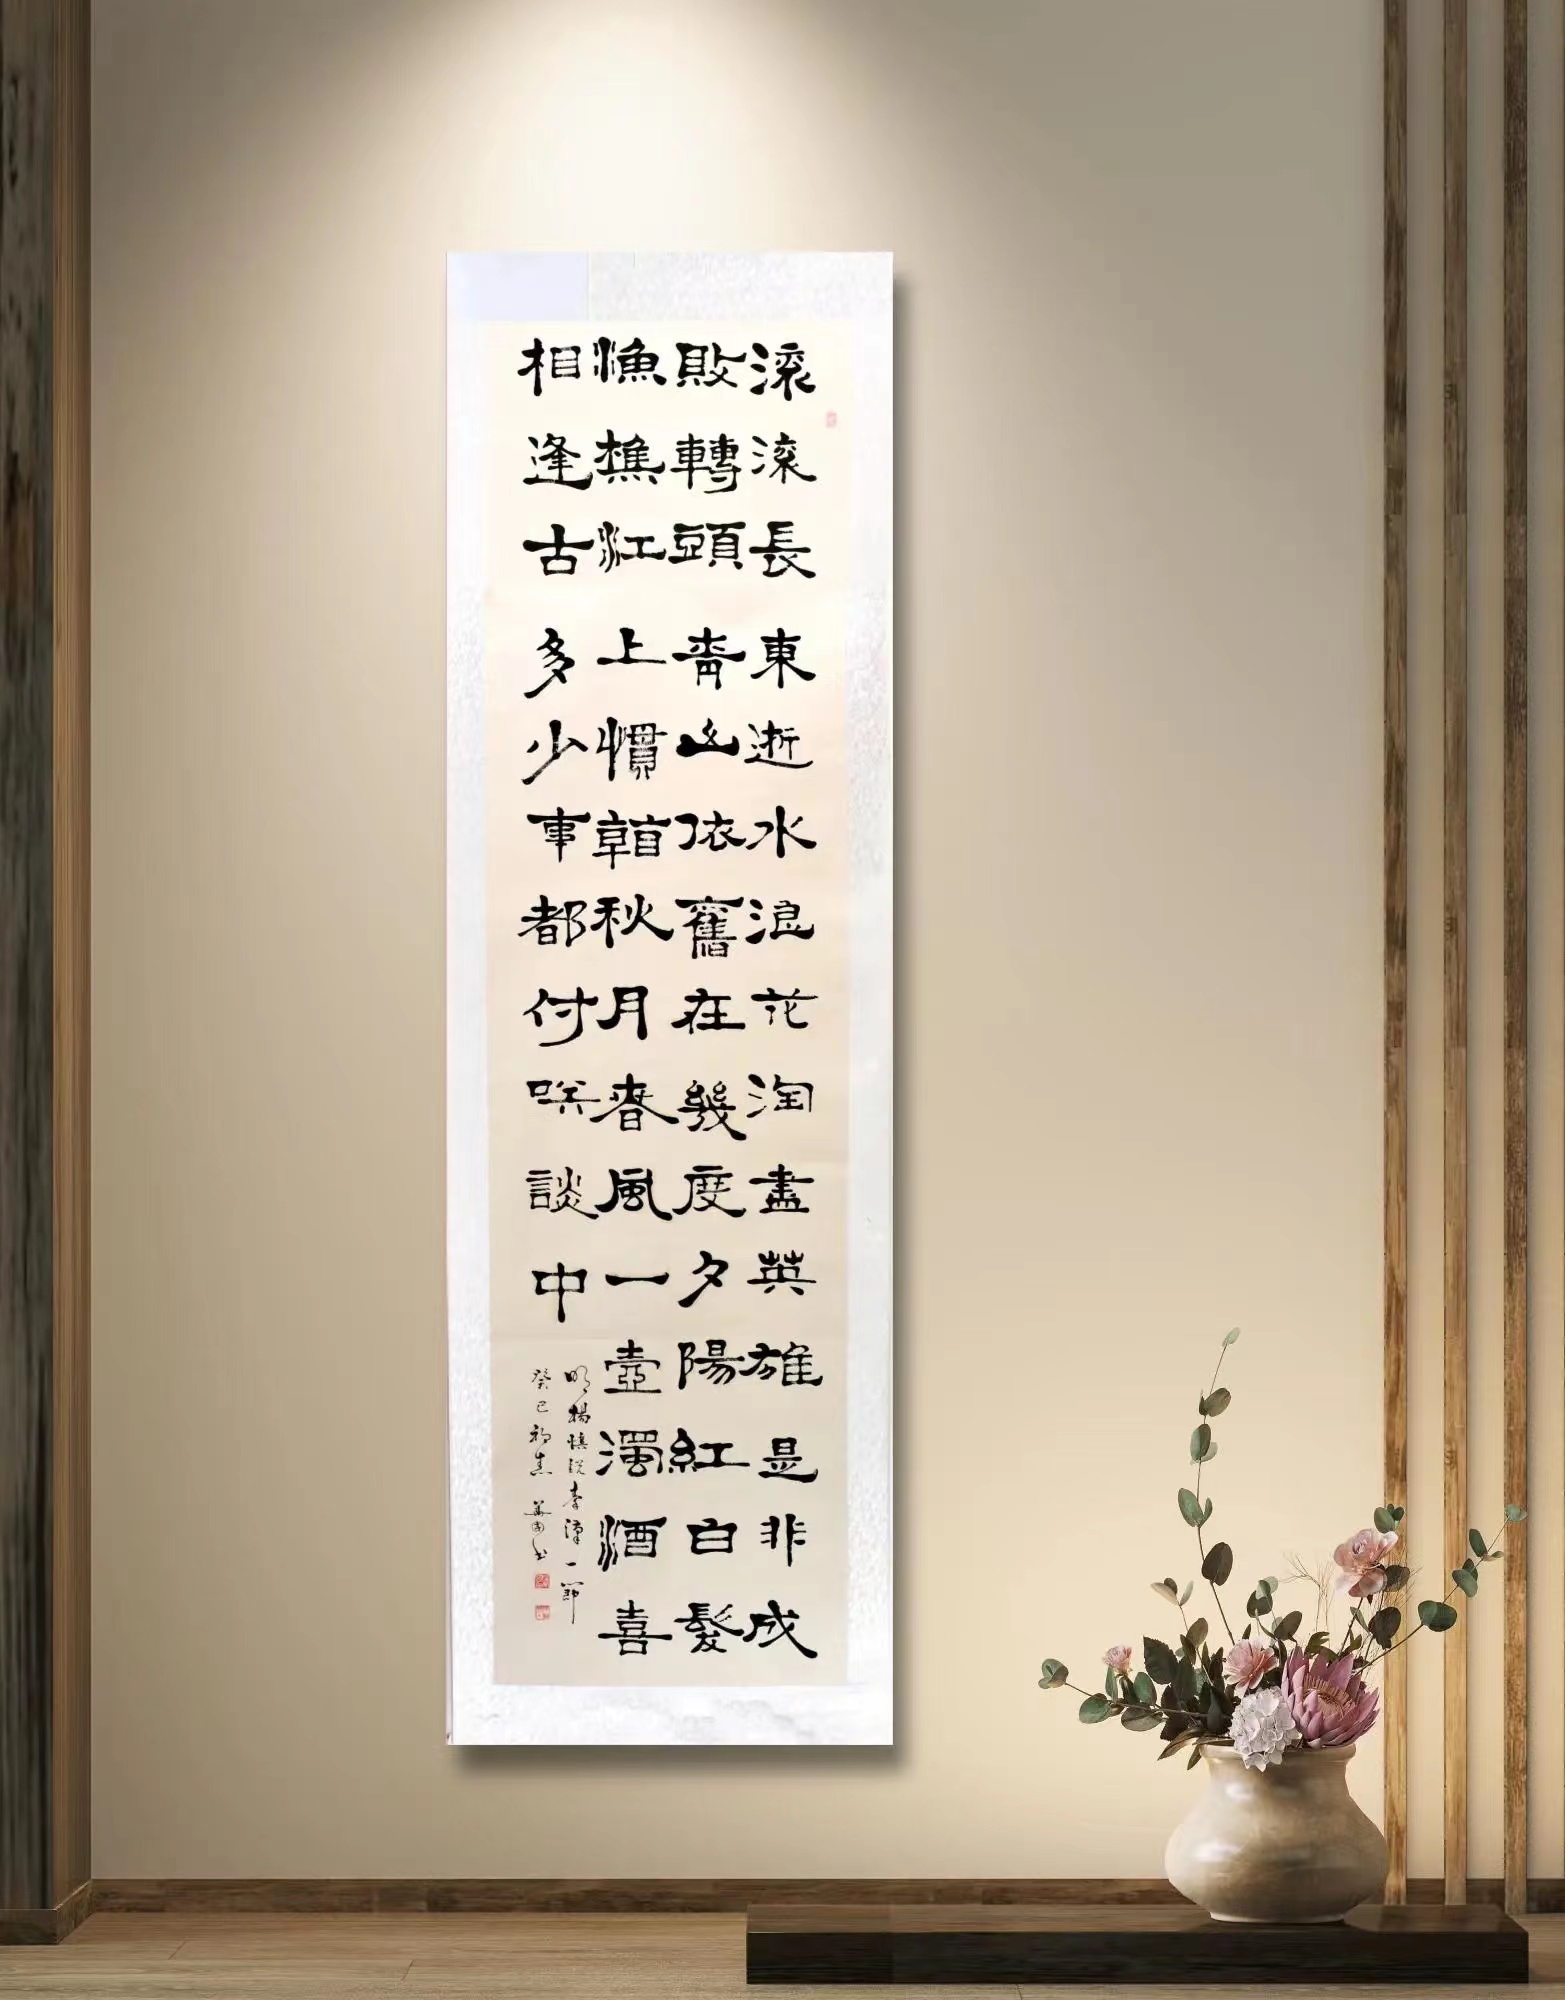 滚滚長東逝水浪花淘盡英雄是非成
敗轉頭青山依舊在幾度夕陽紅白髮
漁樵江上慣看秋月春風一壺濁酒喜
相逢古多少事都付咲談中
明楊慎説秦漢一節
癸巳初